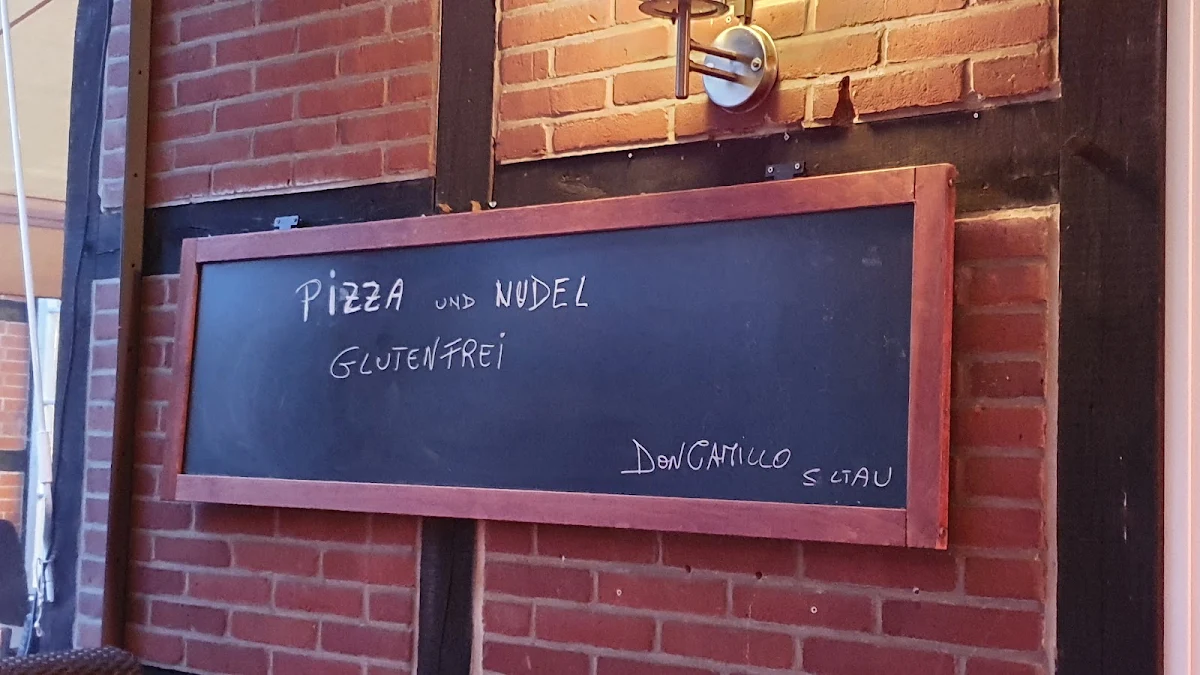 PiZZA UND NUDEL
GLUTENFREi
DON CAMILLO
S LTAU